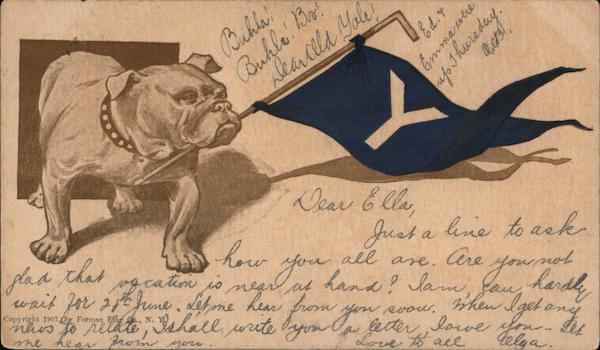 Buhla!
Buhla! Bo!
Dear Old Yale!
Ed. &
Emma were
up Thursday.
Y
Dear Ella,
Just a line to ask
how you all are. Are you not
glad that vacation is near at hand? I am, can hardly
wait for 21st June. Let me hear from you soon. When I get any
Copyright 1907, by Forman N. Y.
news to relate, I shall write you a letter, I owe you - Let
me hear from you. Love to all Olga.